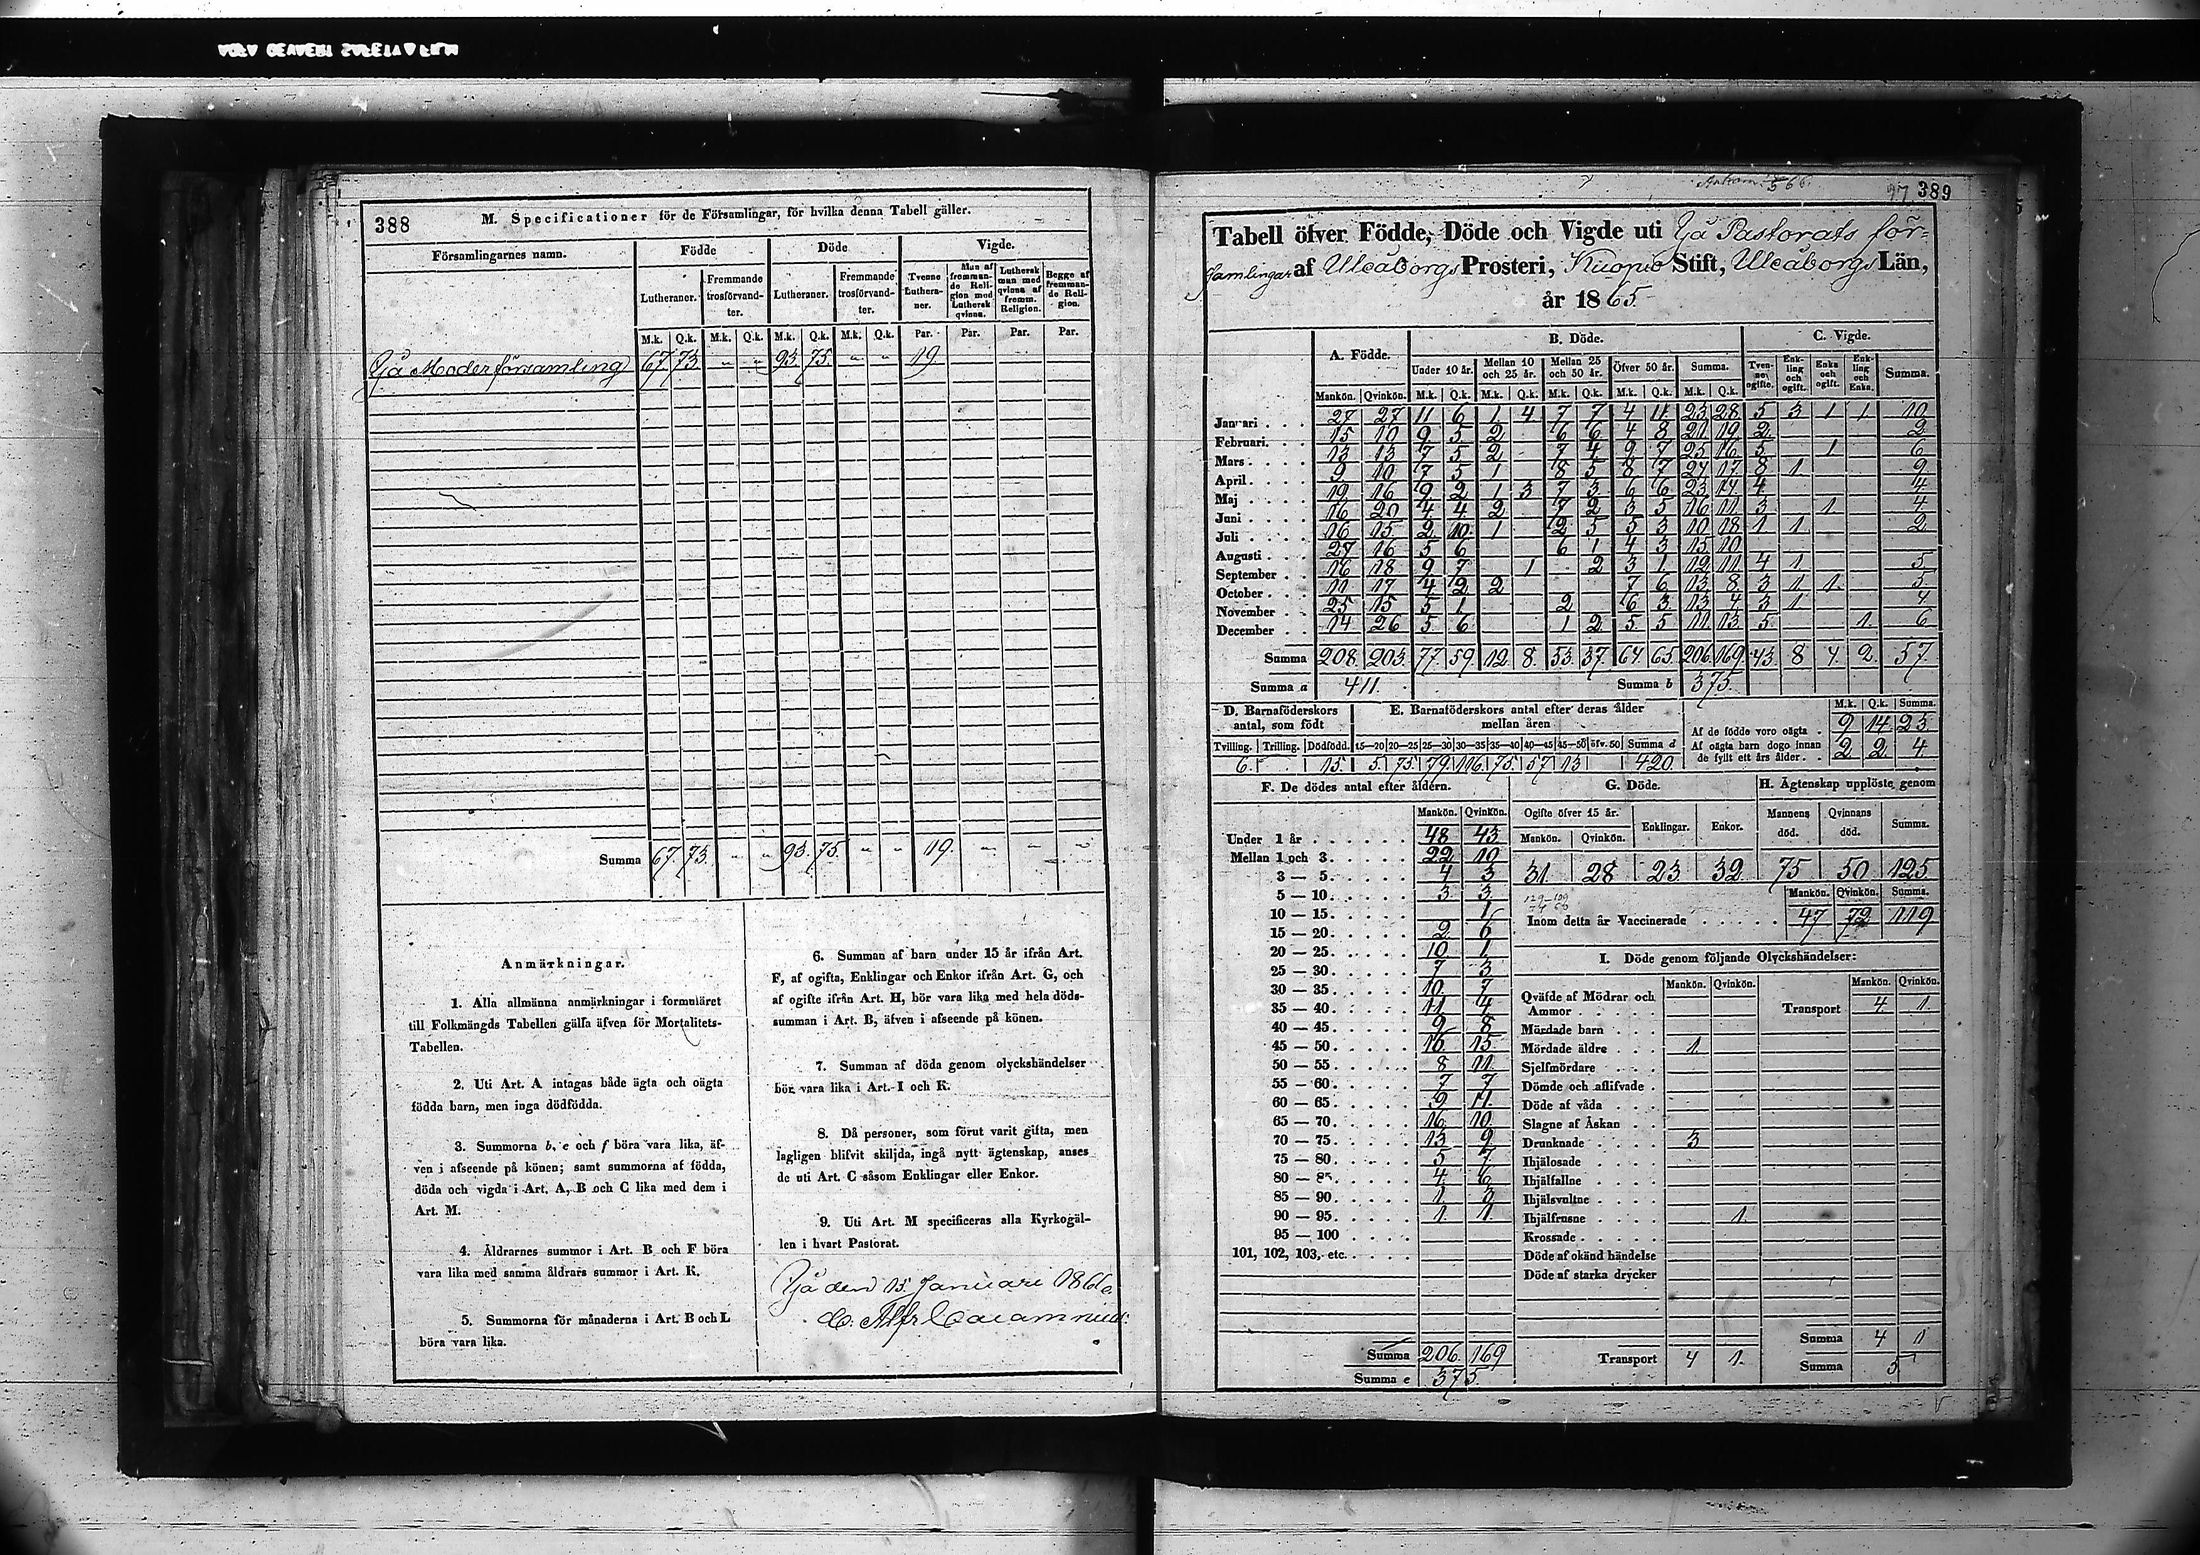 388
M. Specificationer för de Församlingar, för hvilka denna Tabell gäller.
Församlingarnes namn. Födde Döde Vigde.
Lutheraner. Fremmande trosförvandter. Lutheraner. Fremmande trosförvandter. Tvenne Lutheraner. Man af fremmande Religion med Luthersk qvinna. Luthersk man med qvinna af fremm. Religion. Begge af fremmande Religion.
M.k. Q.k. M.k. Q.k. M.k. Q.k. M.k. Q.k. Par. Par. Par. Par.
Ijå Moderförsamling 67. 73. " " 93. 75. " " 19.
Summa 67. 73. " " 93. 75. " " 19. " " "
Anmärkningar.
1. Alla allmänna anmärkningar i formuläret
till Folkmängds Tabellen gälla äfven för Mortalitets-
Tabellen.
2. Uti Art. A intagas både ägta och oägta
födda barn, men inga dödfödda.
3. Summorna b, e och f böra vara lika, äf-
ven i afseende på könen; samt summorna af födda,
döda och vigda i Art. A, B och C lika med dem i
Art. M.
4. Åldrarnes summor i Art. B och F böra
vara lika med samma åldrars summor i Art. K.
5. Summorna för månaderna i Art. B och L
böra vara lika.
6. Summan af barn under 15 år ifrån Art.
F, af ogifta, Enklingar och Enkor ifrån Art. G, och
af ogifte ifrån Art. H, bör vara lika med hela döds-
summan i Art. B, äfven i afseende på könen.
7. Summan af döda genom olyckshändelser
bör vara lika i Art. I och K.
8. Då personer, som förut varit gifta, men
lagligen blifvit skiljda, ingå nytt ägtenskap, anses
de uti Art. C såsom Enklingar eller Enkor.
9. Uti Art. M specificeras alla Kyrkogäl-
len i hvart Pastorat.
Ijå den 15 Januari 1866.
389
Tabell öfver Födde, Döde och Vigde uti Ijå Pastorats för=
samlingar af Uleåborgs Prosteri, Kuopio Stift, Uleåborgs Län,
år 1865.
A. Födde. B. Döde. C. Vigde.
Under 10 år. Mellan 10 och 25 år. Mellan 25 och 50 år. Öfver 50 år. Summa. Tvenne ogifte. Enkling och ogift. Enka och ogift. Enkling och Enka. Summa.
Mankön. Qvinkön. M.k. Q.k. M.k. Q.k. M.k. Q.k. M.k. Q.k. M.k. Q.k.
Januari 27 27 11 6 1 4 7 7 4 11 23 28 5 3 1 1 10
Februari 15 10 9 5 2 6 6 4 8 21 19 2 2
Mars 13 13 7 5 2 7 4 9 7 25 16 5 1 6
April 9 10 7 5 1 8 5 8 7 24 17 8 1 9
Maj 19 16 9 2 1 3 7 3 6 6 23 14 4 4
Juni 16 20 4 4 2 7 2 3 5 16 11 3 1 4
Juli 16 15 2 10 1 2 5 5 3 10 18 1 1 2
Augusti 27 16 5 6 6 1 4 3 15 10
September 16 18 9 7 1 2 3 1 12 11 4 1 5
October 11 17 4 2 2 7 6 13 8 3 1 1 5
November 25 15 5 1 2 6 3 13 4 3 1 4
December 14 26 5 6 1 2 5 5 11 13 5 1 6
Summa 208. 203. 77. 59. 12. 8. 53. 37. 64. 65. 206. 169. 43. 8 4. 2. 57.
Summa a 411. Summa b 375.
D. Barnaföderskors antal, som födt
E. Barnaföderskors antal efter deras ålder mellan åren
Tvilling. Trilling. Dödfödd. 15—20 20—25 25—30 30—35 35—40 40—45 45—50 öfv. 50 Summa d
6. 15. 5. 75. 79. 116. 75. 57 13 420.
M.k. Q.k. Summa.
Af de födde voro oägta 9 14 23
Af oägta barn dogo innan de fyllt ett års ålder 2 2 4
F. De dödes antal efter åldern.
Mankön. Qvinkön.
Under 1 år 48 43
Mellan 1 och 3 22 10
3 — 5 4 3
5 — 10 3 3
10 — 15 1
15 — 20 2 6
20 — 25 10 1
25 — 30 7 3
30 — 35 10 7
35 — 40 11 4
40 — 45 9 8
45 — 50 16 15
50 — 55 8 11
55 — 60 7 7
60 — 65 9 11
65 — 70 16 10
70 — 75 13 9
75 — 80 5 7
80 — 85 4 6
85 — 90 1 3
90 — 95 1 1
95 — 100
101, 102, 103, etc.
Summa 206. 169
Summa e 375.
G. Döde.
Ogifte öfver 15 år. Enklingar. Enkor.
Mankön. Qvinkön.
31 28 23 32
H. Ägtenskap upplöste genom
Mannens död. Qvinnans död. Summa.
75 50 125
Mankön. Qvinkön. Summa.
Inom detta år Vaccinerade 47 72 119
I. Döde genom följande Olyckshändelser:
Mankön. Qvinkön. Mankön. Qvinkön.
Qväfde af Mödrar och Ammor Transport 4 1.
Mördade barn
Mördade äldre 1.
Sjelfmördare
Dömde och aflifvade
Döde af våda
Slagne af Åskan
Drunknade 3
Ihjälosade
Ihjälfallne
Ihjälsvultne
Ihjälfrusne 1.
Krossade
Döde af okänd händelse
Döde af starka drycker
Summa 4 1
Transport 4 1. Summa 5